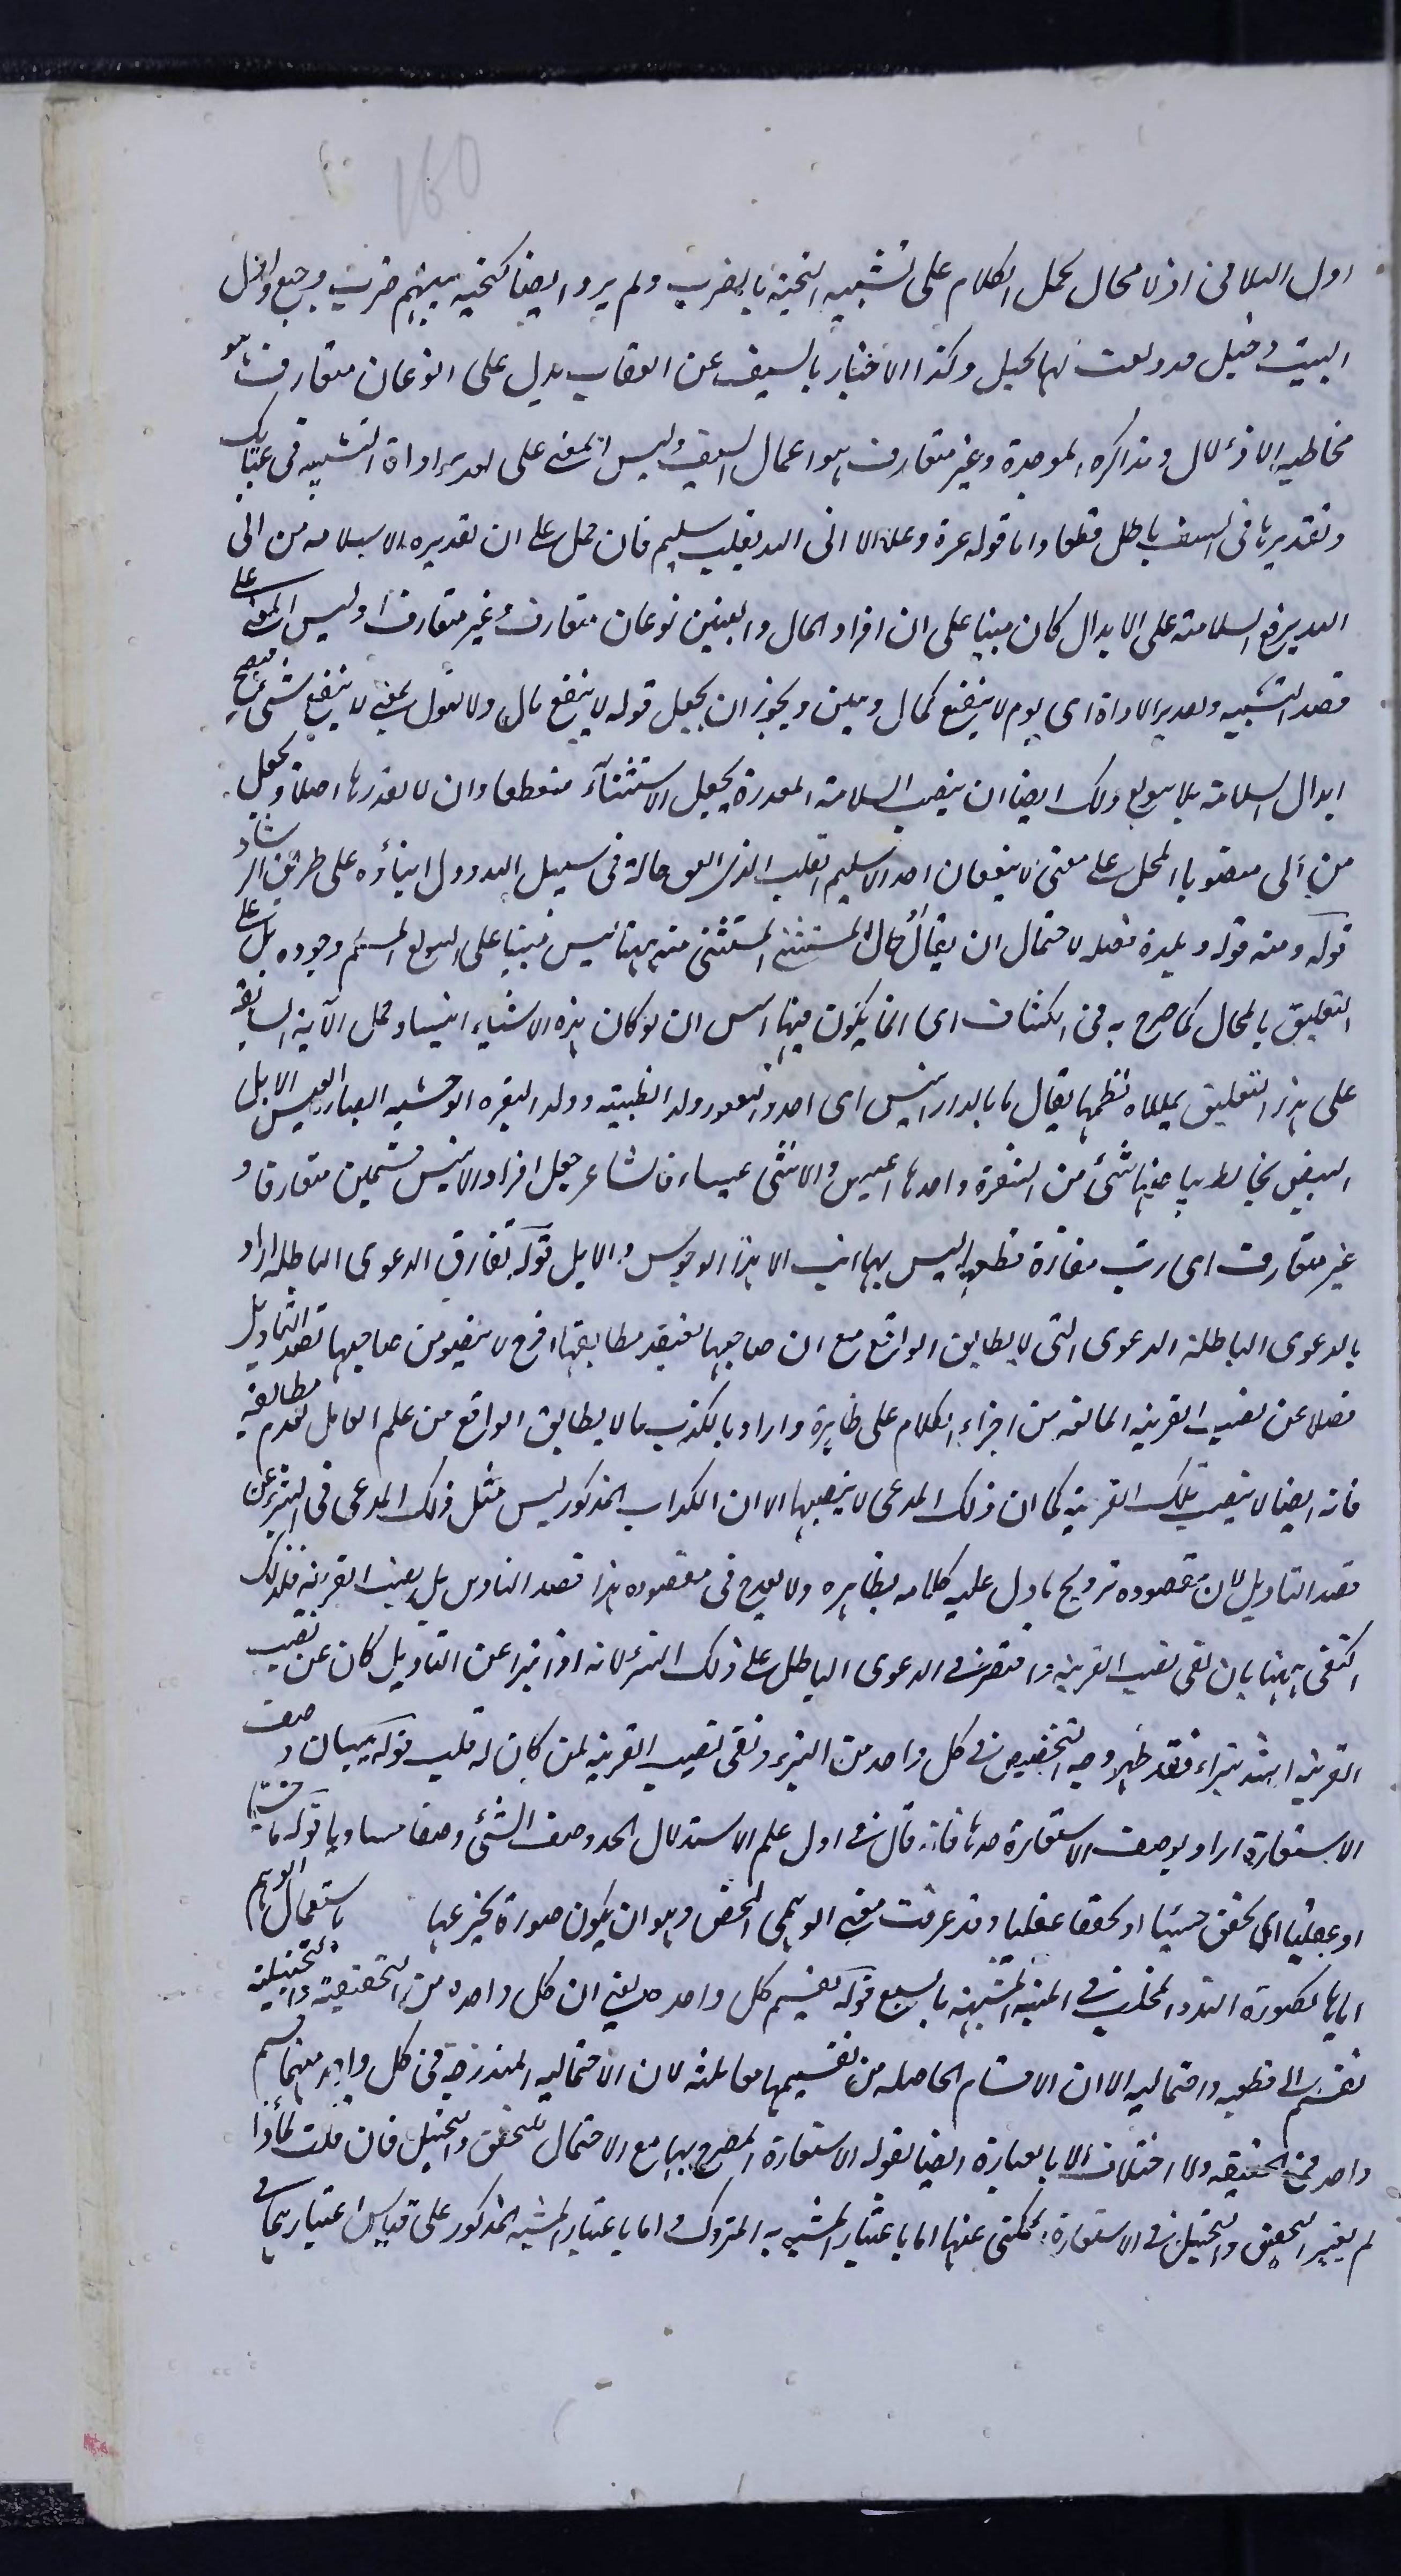 160
اول البلا فى اذ لا محال لحمل الكلام على تشبيه التحية بالضرب ولم يرو ايضا كتحية بينهم ضرب وجيع واول
البيت وخيل قد دلفت لها بخيل وكذا الاختبار بالسيف عن العقاب يدل على انو عان متعارف هو
مخاطبه الاذلال وتذاكره الموجدة وغير متعارف هو اعمال السيف وليس المعنى على تقدير اداة التشبيه فى عتابك
وتقديرها فى السيف باطل قطعا واما قوله عزة وعلا الا من اتى الله بقلب سليم فان حمل على ان تقديره الا سلامة من اتى
الله يرفع السلامة على الابدال كان مبنيا على ان افراد المال والبنين نوعان متعارف وغير متعارف وليس المعنى على
قصد التشبيه وتقدير الاداة اى يوم لا ينفع كمال وبنين ويجوز ان يجعل قوله لا ينفع مال ولا بنون بمعنى لا ينفع شئ فيصح
ابدال السلامة بلا تنويع ولك ايضا ان ينصب السلامة المقدرة بجعل الاستثناء منقطعا وان لا تقدرها اصلا وتجعل
من اتى منصوبا المحل على معنى لا ينفعان احدا الا سليم القلب الذى انفق ماله فى سبيل الله ودل ابناؤه على طريق الرشاد
قوله ومنه قوله وبلدة فصله لاحتمال ان يقال المستثنى المستثنى منه هنا ليس مبنيا على التنويع المسلم وجوده بل على
التعليق بالمحال كما صرح به فى الكشاف اى انما يكون فيها انيس ان لو كان هذه الاشياء انيسا وحمل الآية السابقة
على هذا التعليق نظمها يقال ما بالدار انيس اى احد واليعفور ولد الظبية وولد البقرة الوحشية ايضا والعيس الابل
البيض يخالط بياضها شئ من الشقرة واحدها اعيس والانثى عيساء فالشاعر جعل افراد الانيس قسمين متعارفا و
غير متعارف اى رب مفازة قطعتها ليس بها انيس الا هذا الوحوش والابل قوله تفارق الدعوى الباطلة اراد
بالدعوى الباطلة الدعوى التى لا يطابق الواقع مع ان صاحبها يعتقد مطابقتها اذ لا يتصور من صاحبها قصد التاويل
فضلا عن نصب القرينة المانعة من اجراء الكلام على ظاهره واراد بالكذب ما لا يطابق الواقع من علم القائل بعدم مطابقته
فانه ايضا لا ينصب تلك القرينة كما ان ذلك المدعى لا ينصبها الا ان الكذاب المذكور ليس مثل ذلك المدعى فى التبرى عن
قصد التاويل لان مقصوده ترويج ما دل عليه كلامه بظاهره ولا يقدح فى مقصوده هذا قصد التاويل بل نصب القرينة فلذلك
اكتفى ههنا بان نفى نصب القرينة واقتصر فى الدعوى الباطل على ذلك التبرء لانه اذا تبرأ عن التاويل كان عن نصب
القرينة اشد تبراء فقد ظهر وجه التخصيص فى كل واحد من التبرء ونفى نصب القرينة لمن كان له قلب قوله تبيان وصف
الاستعارة اراد بوصف الاستعارة حدها فانه قال فى اول علم الاستدلال الحد وصف الشئ وصفا مساويا قوله حسيا
او عقليا اى تحقق حسيا او تحققا عقليا وقد عرفت معنى الوهمى المحض وهو ان يكون صورة يخترعها باستعمال الوهم
اياها كصورة الناب والمخلب فى المنية المشبهة بالسبع قوله تقسيم كل واحد يعنى ان كل واحدة من التحقيقية والتخييلية
تقسم الى قطعية واحتمالية الا ان الاقسام الحاصلة من تقسيمها ثلثة لان الاحتمالية المندرجة فى كل واحد منهما قسم
واحد فى الحقيقة ولا اختلاف الا بالعبارة ايضا بقوله الاستعارة المصرح بها مع الاحتمال للتحقق والتخيل فان قلت لماذا
لم يعتبر التحقيق والتخييل فى الاستعارة المكنى عنها اما باعتبار المشبه به المتروك واما باعتبار المشبه المذكور على قياس اعتبارهما فى